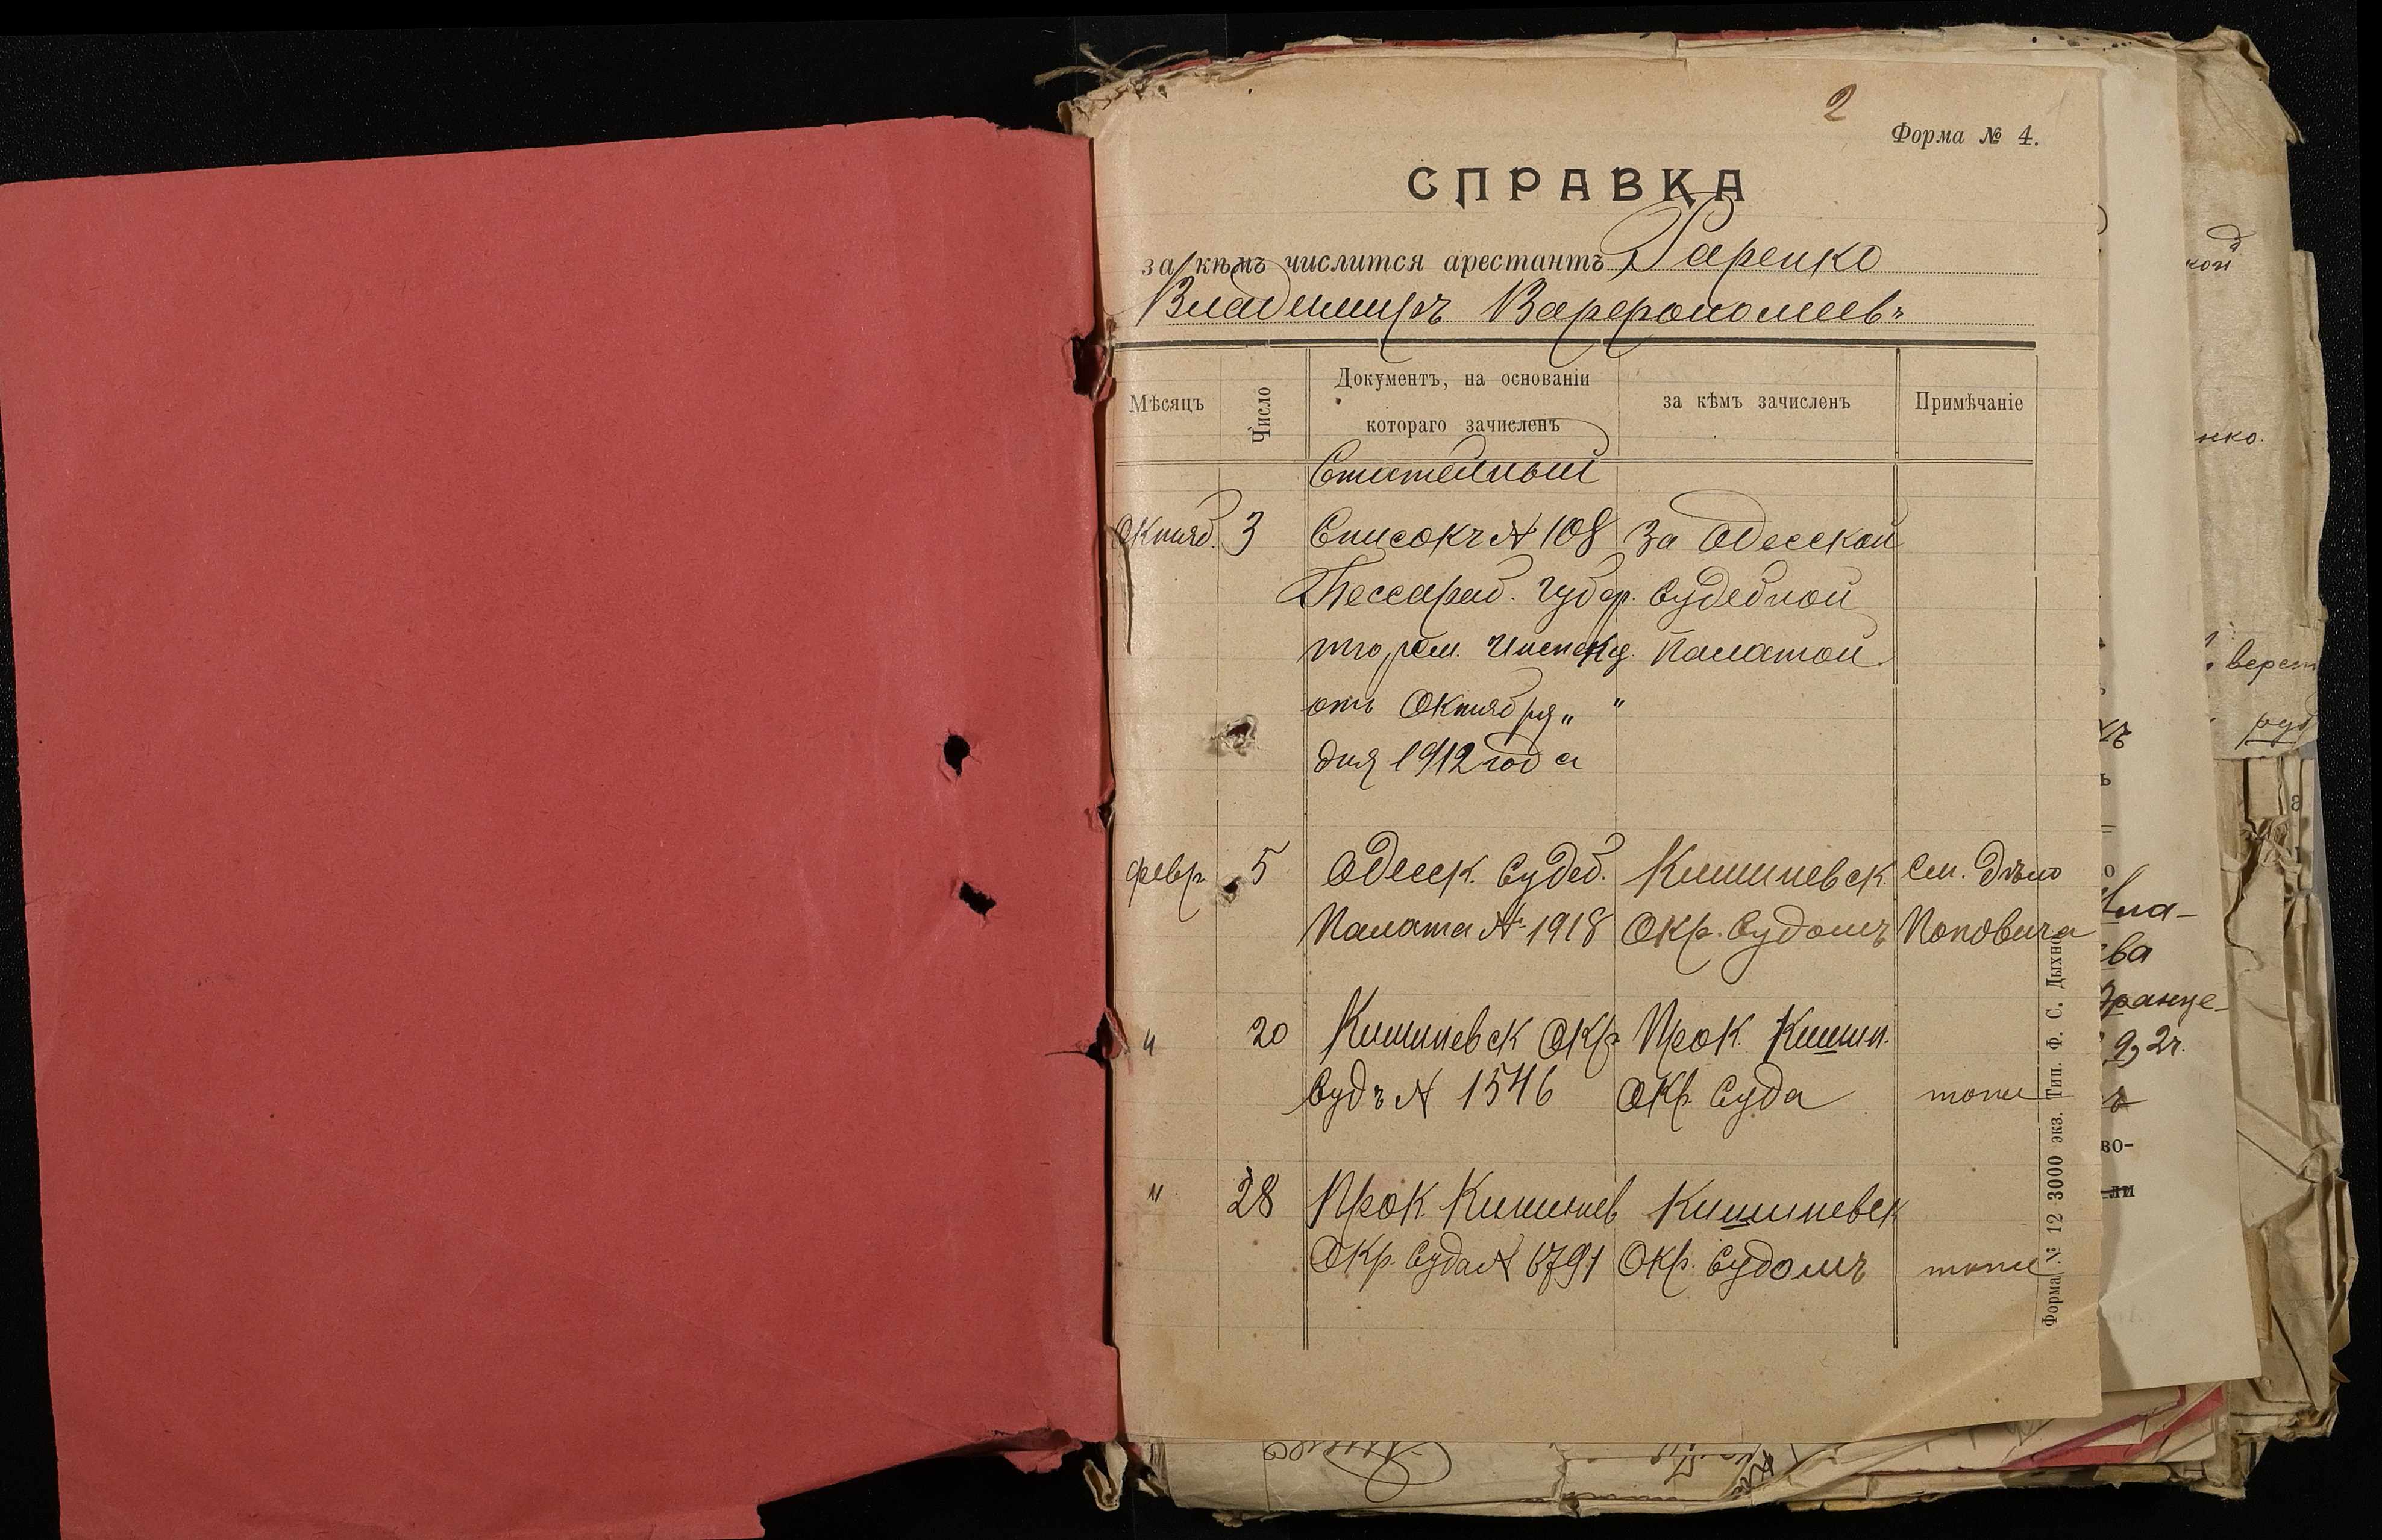 2
Форма № 4.
СПРАВКА
за кѣмъ числится арестантъ Гаренко
Владимиръ Варфоломеевъ
Мѣсяцъ
Число
Документъ, на основаніи
котораго зачисленъ
за кѣмъ зачисленъ
Примѣчаніе
Статейный
Октяб. 3 Списокъ № 108 За Одесской
Бессараб. Губер. Судебной
тюрем. Инспекц. Палатой
отъ Октября „ "
дня 1912 года
февр. 5 Одесск. Судеб. Кишиневск. См. дѣло
Палата № 1918 Окр. Судомъ Поповича
" 20 Кишиневск Окр. Прок. Кишин.
Судъ № 1546 Окр. Суда тоже
" 28 Прок. Кишинев Кишиневск
Окр. Суда № 6791 Окр. Судомъ тоже
Форма № 12 3000 экз. Тип. Ф. С. Дыхно
кой
нко.
верст
ва
9, 2г.
во-
ли